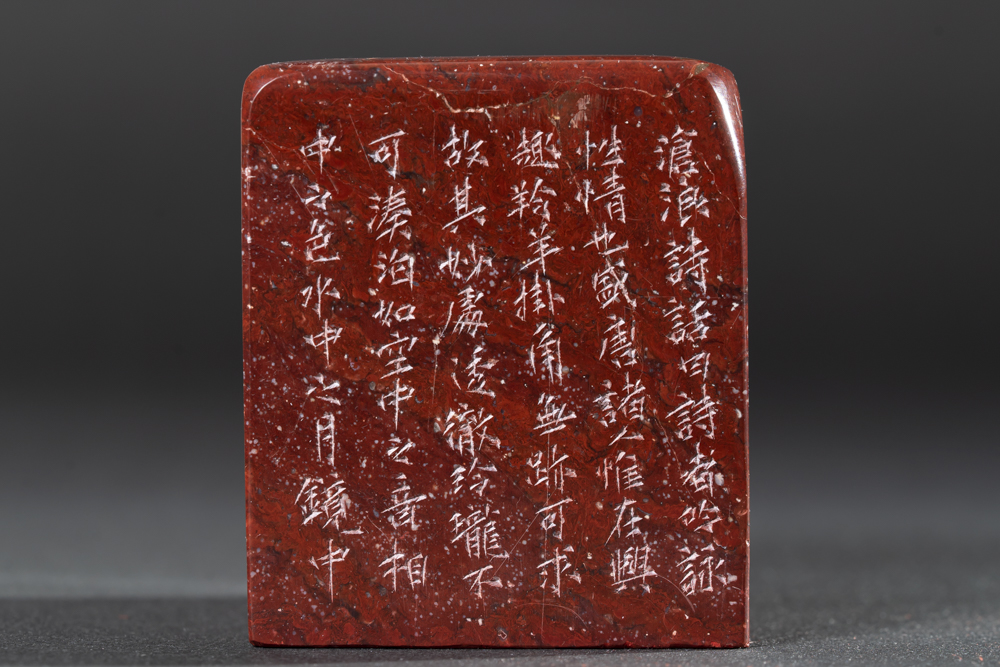 滄浪詩話曰詩者吟詠
性情也盛唐諸人惟在興
趣羚羊掛角無跡可求
故其妙處透徹玲瓏不
可湊泊如空中之音相
中之色水中之月鏡中